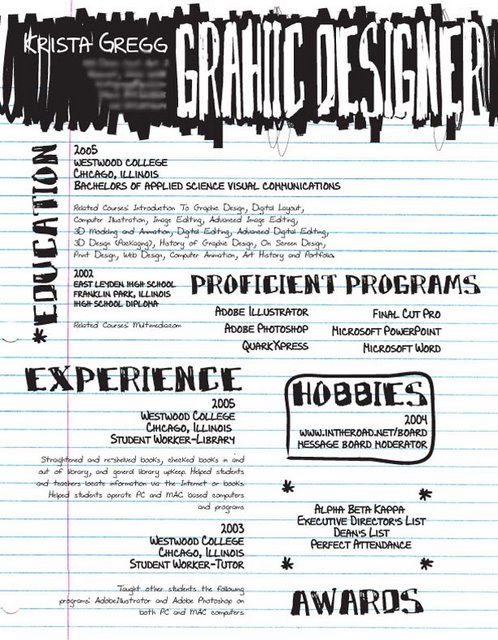 Krista Gregg
GRAHIC DESIGNER
*EDUCATION
2005
Westwood College
Chicago, Illinois
Bachelors of Applied Science Visual Communications
Related Courses: Introduction To Graphic Design, Digital Layout,
Computer Illustration, Image Editing, Advanced Image Editing,
3D Modeling and Animation, Digital Editing, Advanced Digital Editing,
3D Design (Packaging), History of Graphic Design, On Screen Design,
Print Design, Web Design, Computer Animation, Art History and Portfolio.
2002
East Leyden High School
Franklin Park, Illinois
High School Diploma
Related Courses: Multimedia.com
PROFICIENT PROGRAMS
Adobe Illustrator
Adobe Photoshop
QuarkXpress
Final Cut Pro
Microsoft PowerPoint
Microsoft Word
EXPERIENCE
2005
Westwood College
Chicago, Illinois
Student Worker-Library
Straightened and re-shelved books, checked books in and
out of library, and general library upkeep. Helped students
and teachers locate information via the Internet or books.
Helped students operate PC and MAC based computers
and programs
2003
Westwood College
Chicago, Illinois
Student Worker-Tutor
Taught other students the following
programs: AdobeIllustrator and Adobe Photoshop on
both PC and MAC computers.
HOBBIES
2004
www.intheroad.net/board
Message Board Moderator
* *
Alpha Beta Kappa
Executive Director's List
Dean's List
Perfect Attendance
* *
AWARDS